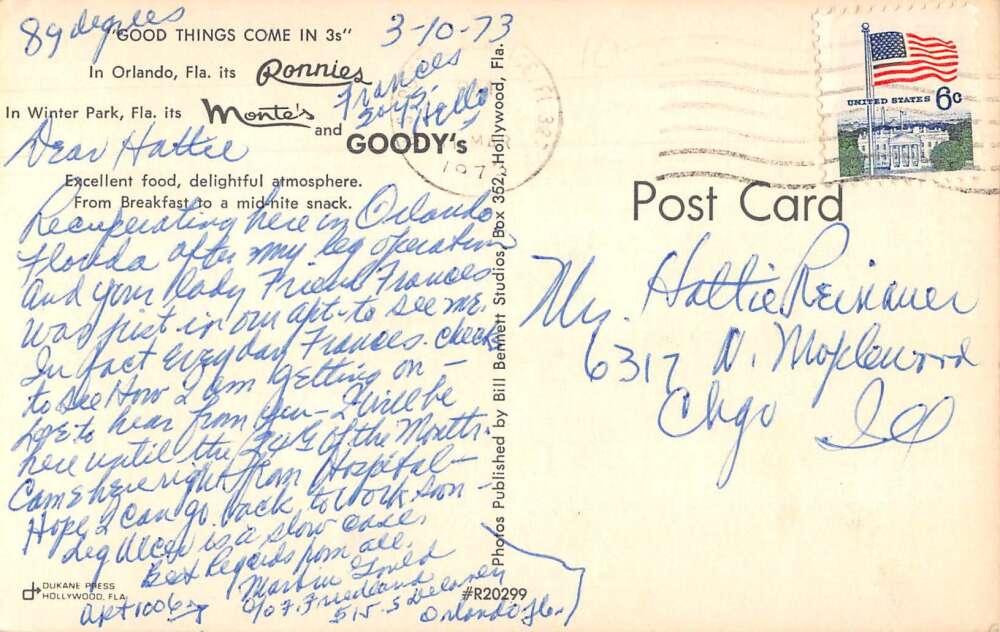 89 degrees
3-10-73
"GOOD THINGS COME IN 3s"
In Orlando, Fla. its Ronnies
In Winter Park, Fla. its Monte's
and GOODY's
Frances
says
Hello
Excellent food, delightful atmosphere.
From Breakfast to a mid-nite snack.
Dear Hattie
Recuperating here in Orlando
Florida after my leg operation
and your lady Friend Frances
was just in our apt. to see me.
In fact Every day Frances. checks
to see How I am getting on —
Love to hear from you — I will be
here until the of the Month.
Came here right from Hospital —
Hope I can go back to work soon —
Leg Ulcer is a slow case.
Best Regards from all.
Martin Gould
c/o F. Friedland
515. S Delaney
Orlando Fla.
Apt 1006
DUKANE PRESS
HOLLYWOOD, FLA.
#R20299
Photos Published by Bill Bennett Studios, Box 352, Hollywood, Fla.
MAR
UNITED STATES 6c
Post Card
Hattie Reisauer
6317 N. Maplewood
Chgo Ill